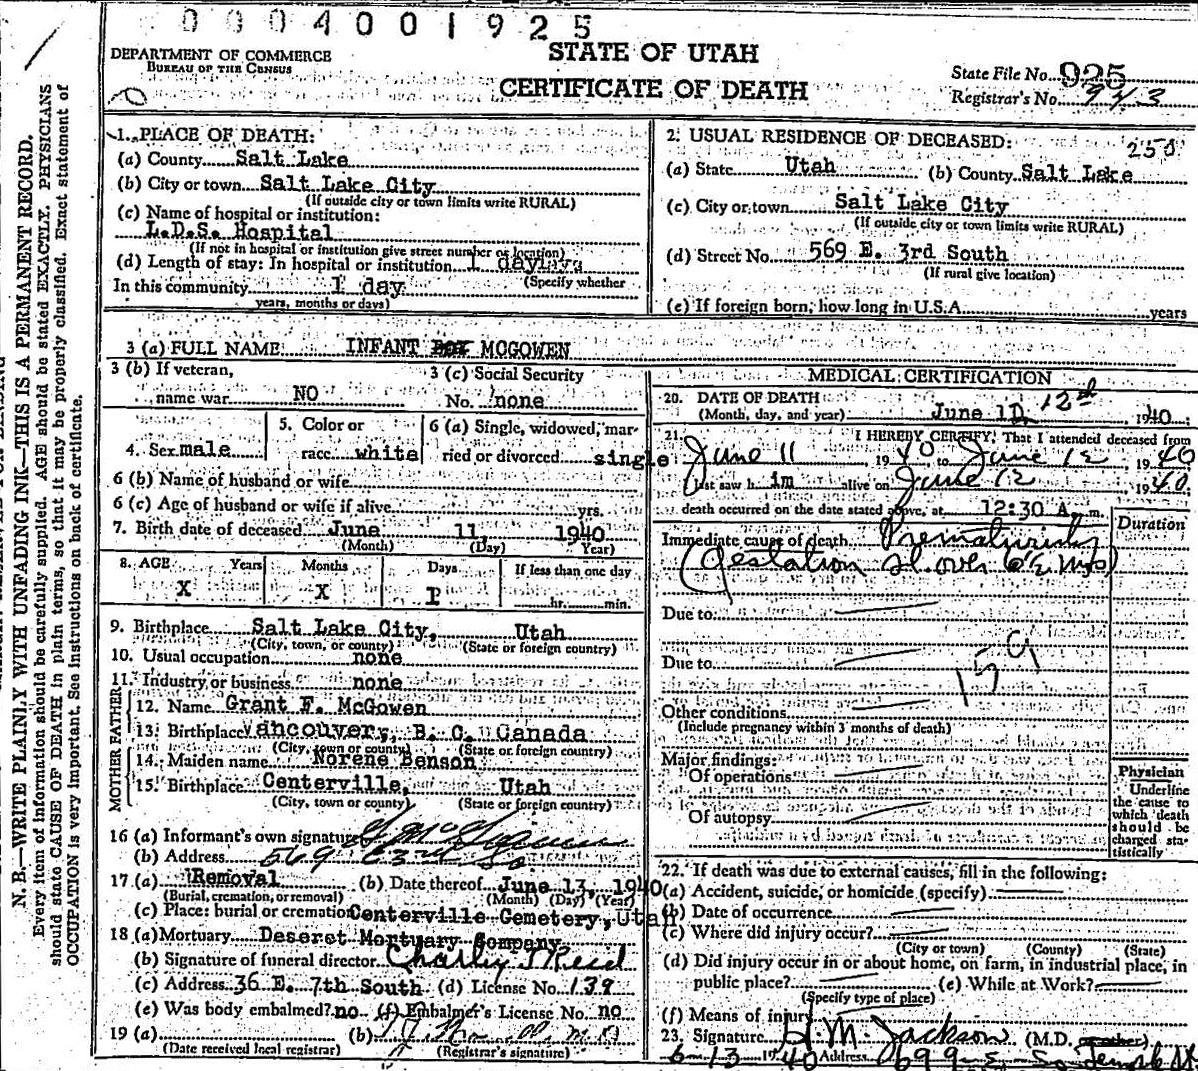 0004001925
DEPARTMENT OF COMMERCE
BUREAU OF THE CENSUS
STATE OF UTAH
CERTIFICATE OF DEATH
State File No. 925
Registrar's No. 943
1. PLACE OF DEATH:
(a) County Salt Lake
(b) City or town Salt Lake City
(If outside city or town limits write RURAL)
(c) Name of hospital or institution:
L.D.S. Hospital
(If not in hospital or institution give street number or location)
(d) Length of stay: In hospital or institution 1 day
(Specify whether
In this community 1 day
years, months or days)
2. USUAL RESIDENCE OF DECEASED: 250
(a) State Utah (b) County Salt Lake
(c) City or town Salt Lake City
(If outside city or town limits write RURAL)
(d) Street No. 569 E. 3rd South
(If rural give location)
(e) If foreign born, how long in U.S.A. years
3 (a) FULL NAME INFANT BOY MCGOWEN
3 (b) If veteran,
name war NO
3 (c) Social Security
No. none
4. Sex male
5. Color or
race white
6 (a) Single, widowed, mar-
ried or divorced single
6 (b) Name of husband or wife
6 (c) Age of husband or wife if alive yrs.
7. Birth date of deceased June 11, 1940
(Month) (Day) Year)
8. AGE Years Months Days If less than one day
X X 1 hr. min.
9. Birthplace Salt Lake City, Utah
(City, town, or county) (State or foreign country)
10. Usual occupation none
11. Industry or business none
FATHER
12. Name Grant F. McGowen
13. Birthplace Vancouver, B. C. Canada
(City, town or county) (State or foreign country)
MOTHER
14. Maiden name Norene Benson
15. Birthplace Centerville, Utah
(City, town or county) (State or foreign country)
16 (a) Informant's own signature
(b) Address 569 E 3rd So
17 (a) Removal (b) Date thereof June 13, 1940
(Burial, cremation, or removal) (Month) (Day) (Year)
(c) Place: burial or cremation Centerville Cemetery, Utah
18 (a) Mortuary Deseret Mortuary Company
(b) Signature of funeral director Charley J Reid
(c) Address 36 E. 7th South (d) License No. 139
(e) Was body embalmed? no (f) Embalmer's License No. no
19 (a) (b)
(Date received local registrar) (Registrar's signature)
MEDICAL CERTIFICATION
20. DATE OF DEATH
(Month, day, and year) June 12th, 1940
21. I HEREBY CERTIFY, That I attended deceased from
June 11, 1940 to June 12, 1940
last saw h im alive on June 12, 1940
death occurred on the date stated above, at 12:30 A. m.
Duration
Immediate cause of death Prematurity
(Gestation sl. over 6½ mos)
Due to
Due to
159
Other conditions
(Include pregnancy within 3 months of death)
Major findings:
Of operations
Of autopsy
Physician
Underline
the cause to
which death
should be
charged sta-
tistically
22. If death was due to external causes, fill in the following:
(a) Accident, suicide, or homicide (specify)
(b) Date of occurrence
(c) Where did injury occur?
(City or town) (County) (State)
(d) Did injury occur in or about home, on farm, in industrial place, in
public place? (e) While at Work?
(Specify type of place)
(f) Means of injury
23. Signature H. M. Jackson (M.D. or other)
6-13 1940 Address 699 E So Temple St
N. B.—WRITE PLAINLY WITH UNFADING INK—THIS IS A PERMANENT RECORD.
Every item of information should be carefully supplied. AGE should be stated EXACTLY. PHYSICIANS
should state CAUSE OF DEATH in plain terms, so that it may be properly classified. Exact statement of
OCCUPATION is very important. See instructions on back of certificate.